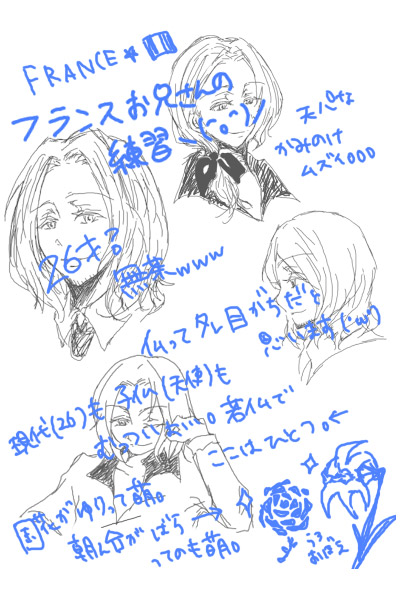 FRANCE★
フランスお兄さんの
練習_(:o^)/
天パな
かみのけ
ムズイ。。。
26才?
無茶www
仏ってタレ目がちだと
思います('ω')
現代(26)も 子仏(天使)も
むつかしい。若仏で
ここはひとつ。←
国花がゆりって萌。
朝ん合がばら→
ってのも萌。
うろ
おぼえ